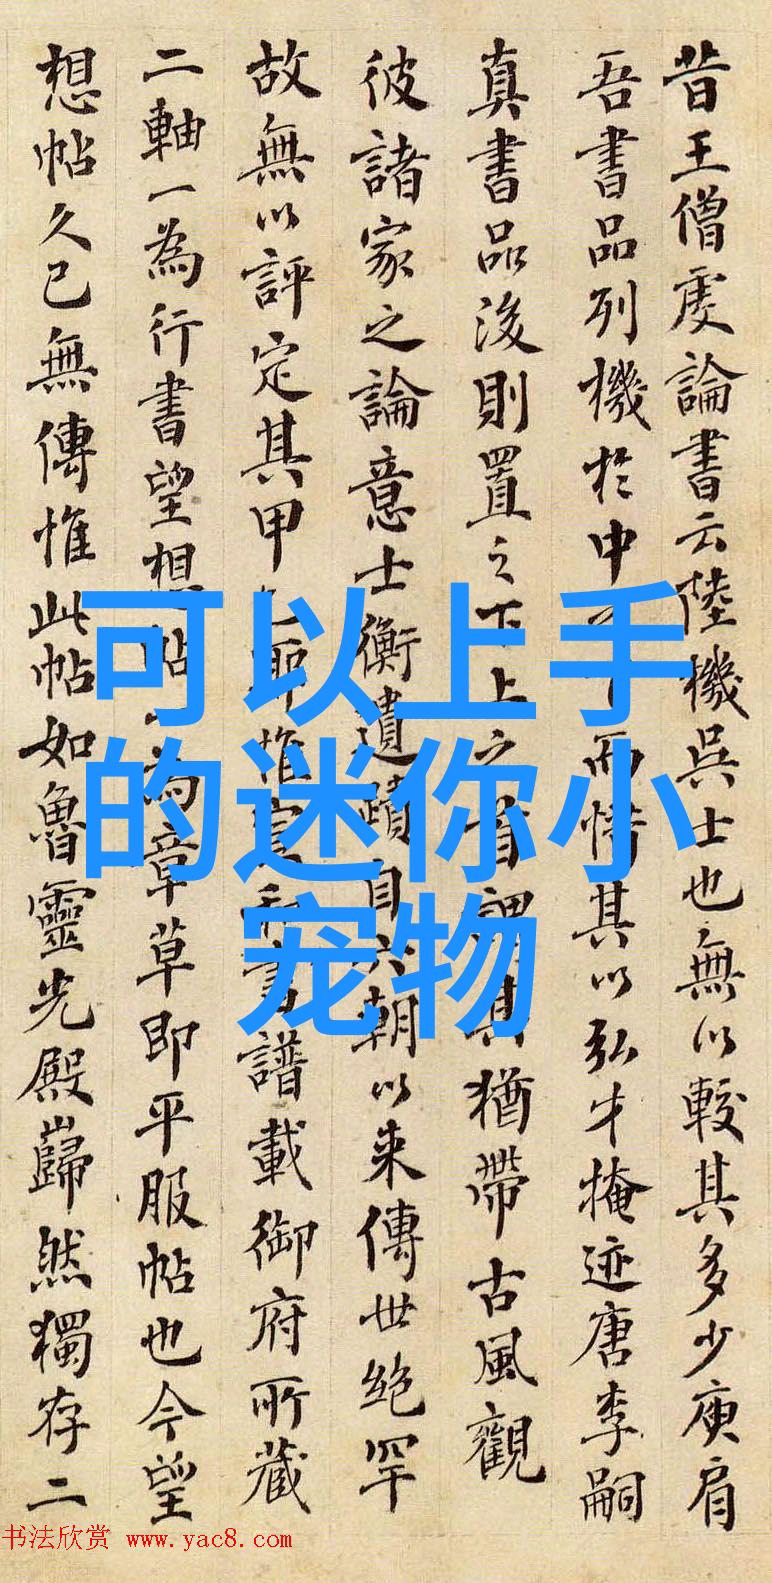 昔王僧虔論書云陸機吳士也無以較其多少庾肩
吾書品列機於中而惜其以弘才掩迹唐李嗣
真書品後則置之下上之首謂其猶帶古風觀
彼諸家之論意士衡遺蹟自六朝以来傳世絶罕
故無以評定其甲耶惟書譜載御府所藏
二軸一為行書望想帖一為章草即平服帖也今望
想帖久已無傳惟此帖如魯靈光殿巋然獨存二
可以上手
的迷你小
宠物
书法欣赏 www.yac8.com